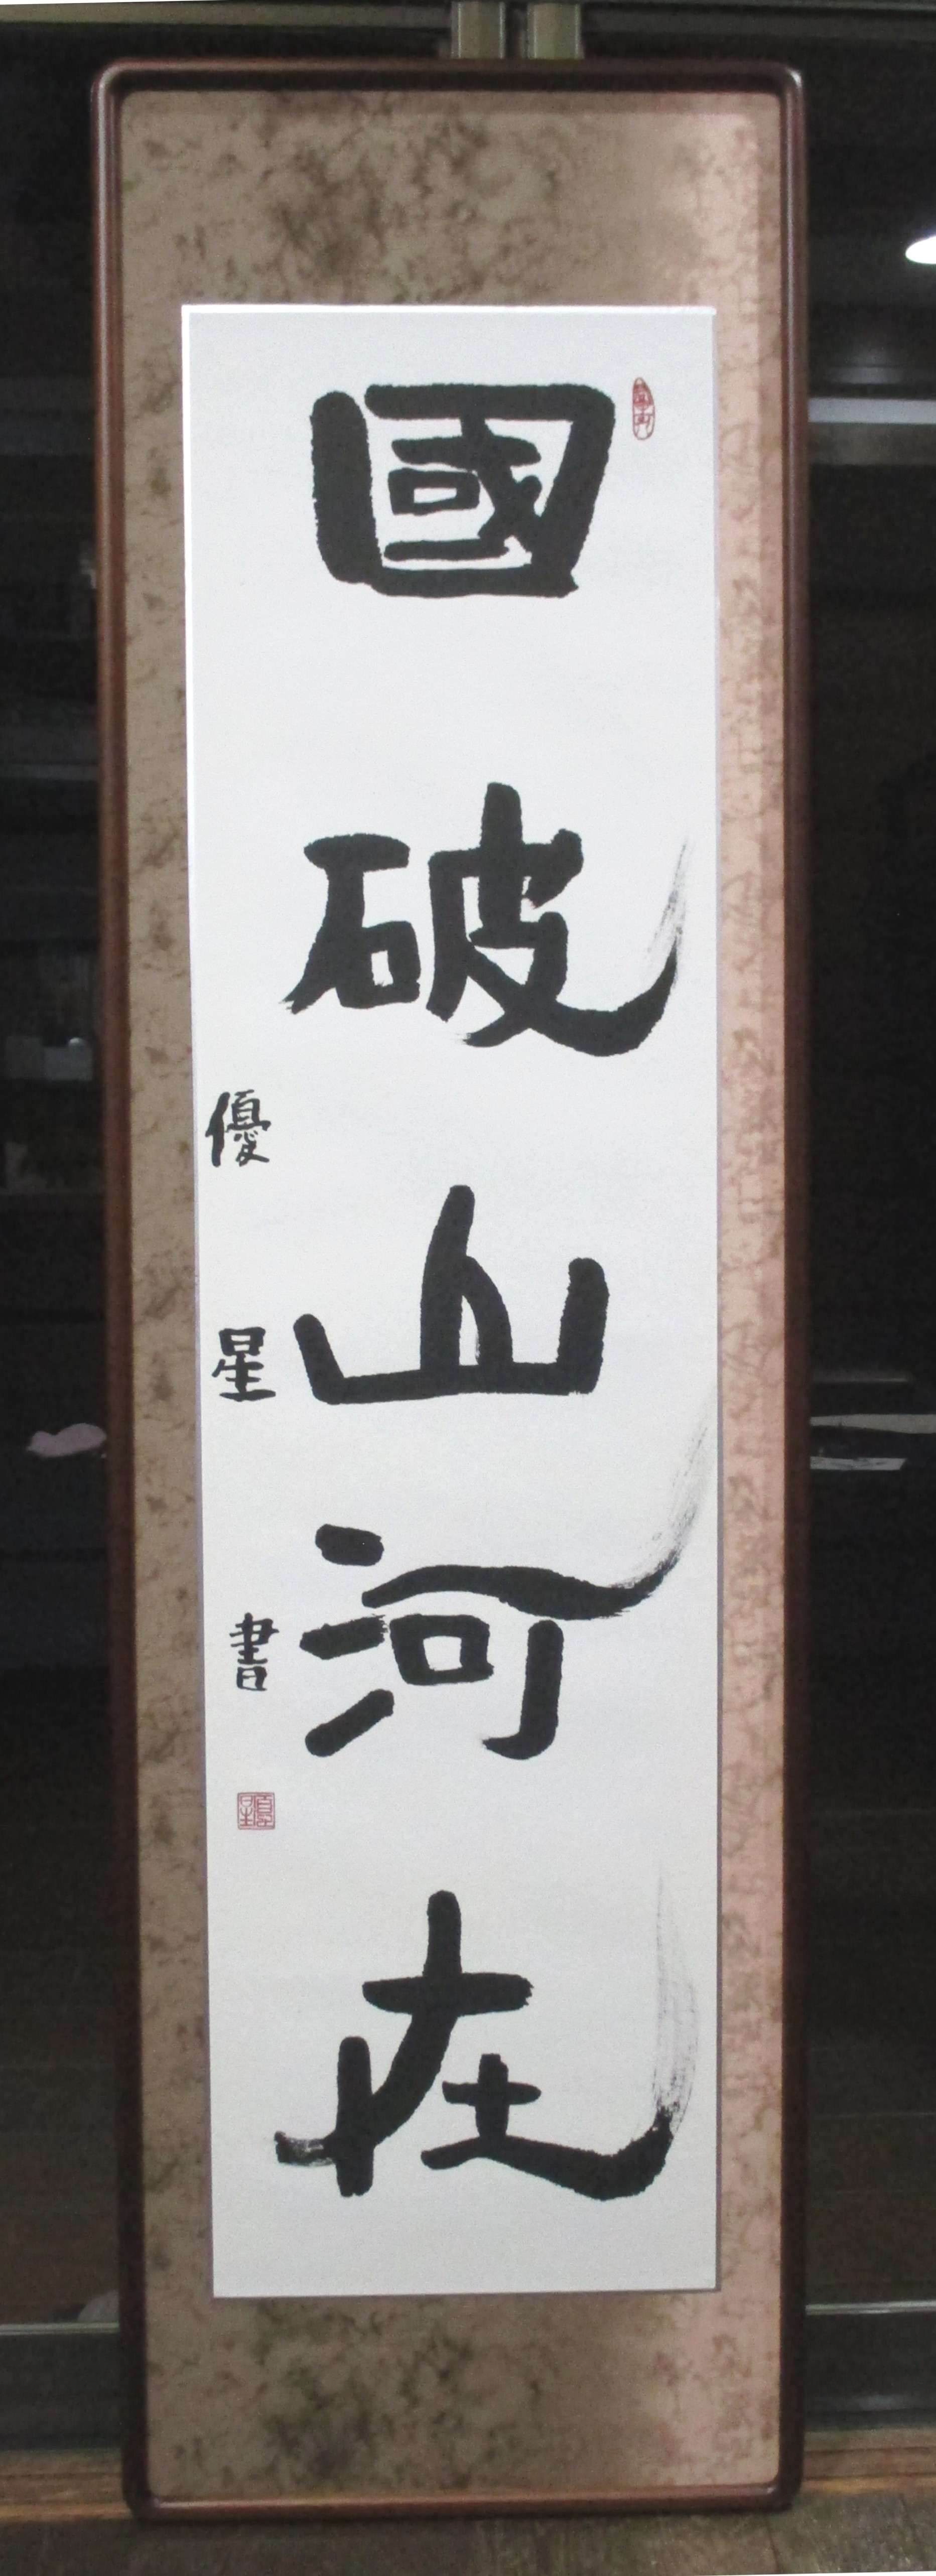 國破山河在
優星書
優星